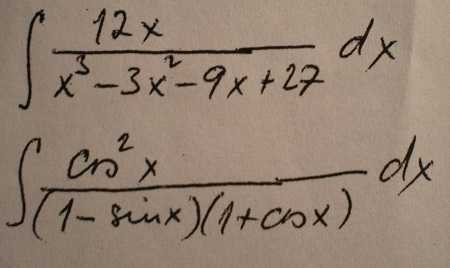 ∫ 12x / (x³ - 3x² - 9x + 27) dx
∫ cos²x / ((1 - sinx)(1 + cosx)) dx